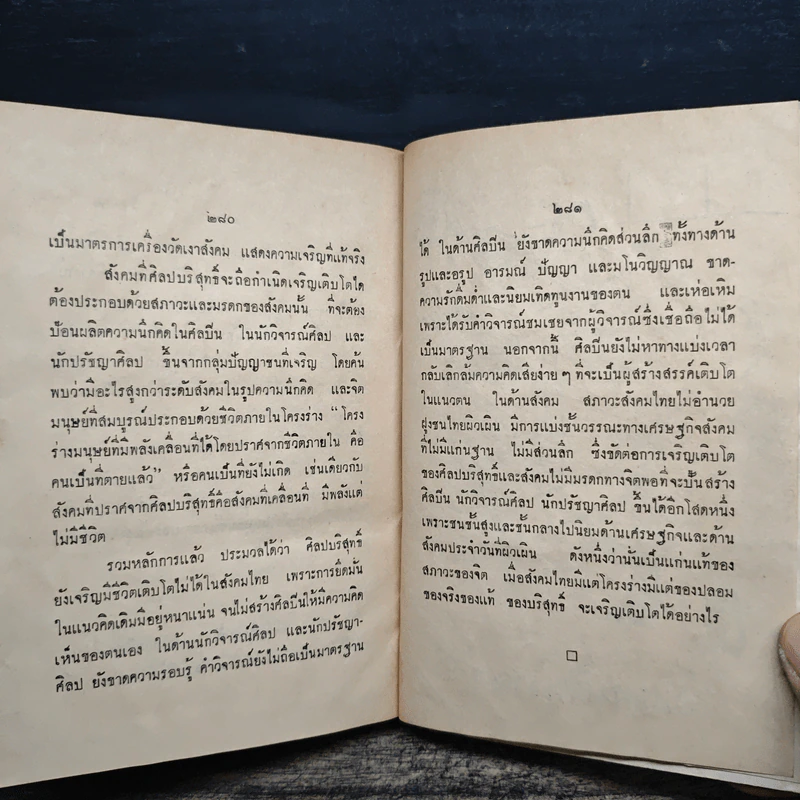 ๒๘๐
เป็นมาตรการเครื่องวัดเงาสังคม แสดงความเจริญที่แท้จริง
สังคมที่ศิลปบริสุทธิ์จะถือกำเนิดเจริญเติบโตใด
ต้องประกอบด้วยสภาวะและมรดกของสังคมนั้น ที่จะต้อง
ป้อนผลิตความนึกคิดในศิลปีน ในนักวิจารณ์ศิลป และ
นักปรัชญาศิลป ขึ้นจากกลุ่มปัญญาชนที่เจริญ โดยค้น
พบว่ามีอะไรสูงกว่าระดับสังคมในรูปความนึกคิด และจิต
มนุษย์ที่สมบูรณ์ประกอบด้วยชีวิตภายในโครงร่าง “โครง
ร่างมนุษย์ที่มีพลังเคลื่อนที่ได้โดยปราศจากชีวิตภายใน คือ
คนเป็นที่ตายแล้ว” หรือคนเป็นที่ยังไม่เกิด เช่นเดียวกับ
สังคมที่ปราศจากศิลปบริสุทธิ์คือสังคมที่เคลื่อนที่ มีพลังแต่
ไม่มีชีวิต
รวมหลักการแล้ว ประมวลได้ว่า ศิลปบริสุทธิ์
ยังเจริญมีชีวิตเติบโตไม่ได้ในสังคมไทย เพราะการยึดมั่น
ในแนวคิดเดิมมีอยู่หนาแน่น จนไม่สร้างศิลปีนให้มีความคิด
เห็นของตนเอง ในด้านนักวิจารณ์ศิลป และนักปรัชญา-
ศิลป ยังขาดความรอบรู้ คำวิจารณ์ยังไม่ถือเป็นมาตรฐาน
๒๘๑
ได้ ในด้านศิลปีน ยังขาดความนึกคิดส่วนลึก ทั้งทางด้าน
รูปและอรูป อารมณ์ ปัญญา และมโนวิญญาณ ขาด-
ความรักดื่มด่ำและนิยมเทิดทูนงานของตน และเห่อเหิม
เพราะได้รับคำวิจารณ์ชมเชยจากผู้วิจารณ์ซึ่งเชื่อถือไม่ได้
เป็นมาตรฐาน นอกจากนี้ ศิลปีนยังไม่หาทางแบ่งเวลา
กลับเลิกล้มความคิดเสียง่าย ๆ ที่จะเป็นผู้สร้างสรรค์เติบโต
ในแนวตน ในด้านสังคม สภาวะสังคมไทยไม่อำนวย
ฝูงชนไทยผิวเผิน มีการแบ่งชั้นวรรณะทางเศรษฐกิจสังคม
ที่ไม่มีแก่นฐาน ไม่มีส่วนลึก ซึ่งขัดต่อการเจริญเติบโต
ของศิลปบริสุทธิ์และสังคมไม่มีมรดกทางจิตพอที่จะปั้นสร้าง
ศิลปีน นักวิจารณ์ศิลป นักปรัชญาศิลป ขึ้นได้อีกโสดหนึ่ง
เพราะชนชั้นสูงและชั้นกลางไปนิยมด้านเศรษฐกิจและด้าน
สังคมประจำวันที่ผิวเผิน ดังหนึ่งว่านั่นเป็นแก่นแท้ของ
สภาวะของจิต เมื่อสังคมไทยมีแต่โครงร่างมีแต่ของปลอม
ของจริงของแท้ ของบริสุทธิ์ จะเจริญเติบโตได้อย่างไร